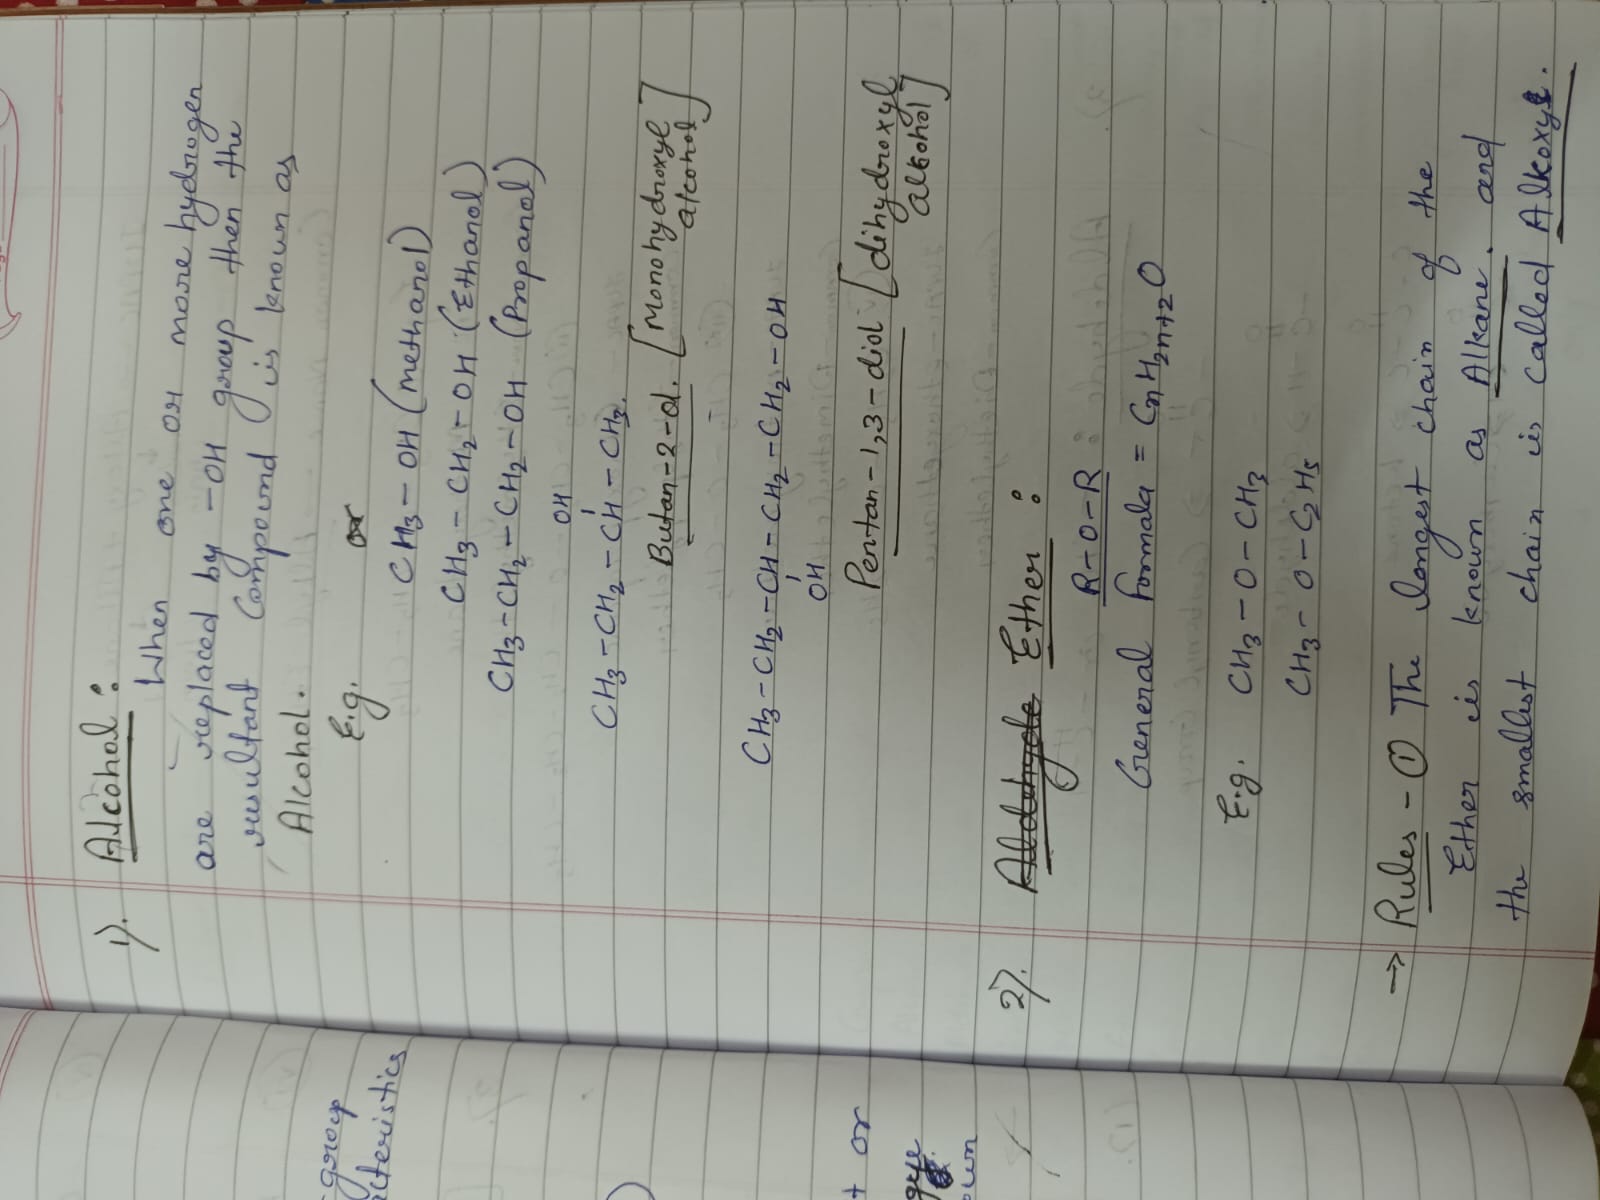 1). Alcohol :
When one or more hydrogen
are replaced by -OH group then the
resultant compound is known as
Alcohol.
E.g.
CH3 - OH (methanol)
CH3 - CH2 - OH (Ethanol)
CH3 - CH2 - CH2 - OH (Propanol)
OH
CH3 - CH2 - CH - CH3.
Butan-2-ol. [Monohydroxyl
alcohol]
CH3 - CH2 - CH - CH2 - CH2 - OH
OH
Pentan-1,3-diol [dihydroxyl
alcohol]
2). Ether :
R-O-R
General Formala = CnH2n+2O
E.g. CH3 - O - CH3
CH3 - O - C2H5
→ Rules - ① The longest chain of the
Ether is known as Alkane. and
the smallest chain is called Alkoxy.
group
acteristics
or
own